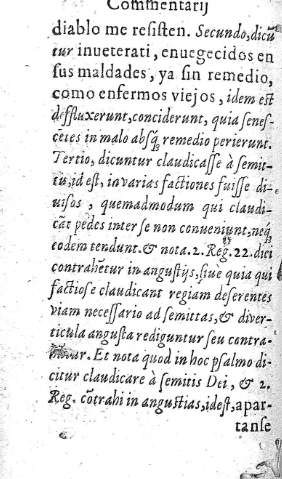 Commentarij
diablo me resisten. Secundo, dicũ
tur inueterati, enuegecidos en
sus maldades, ya sin remedio,
como enfermos viejos, idem est
deffluxerunt, conciderunt, quia senes-
cẽtes in malo absq; remedio perierunt.
Tertio, dicuntur claudicasse à semit-
tis, id est, in varias factiones fuisse di-
uisos, quemadmodum qui claudi-
cãt pedes inter se non conueniunt, neq;
eodem tendunt. & nota. 2. Reg. 22. dici
contrahẽtur in angustijs, siue quia qui
factiose claudicant regiam deserentes
viam necessario ad semittas, & diuer-
ticula angusta rediguntur seu contra-
Et nota quod in hoc psalmo di-
citur claudicare à semitis Dei, & 2.
Reg. cõtrahi in angustias, id est, apar-
tanse